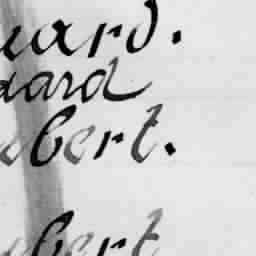 uard.
aard
ebert.
ebert